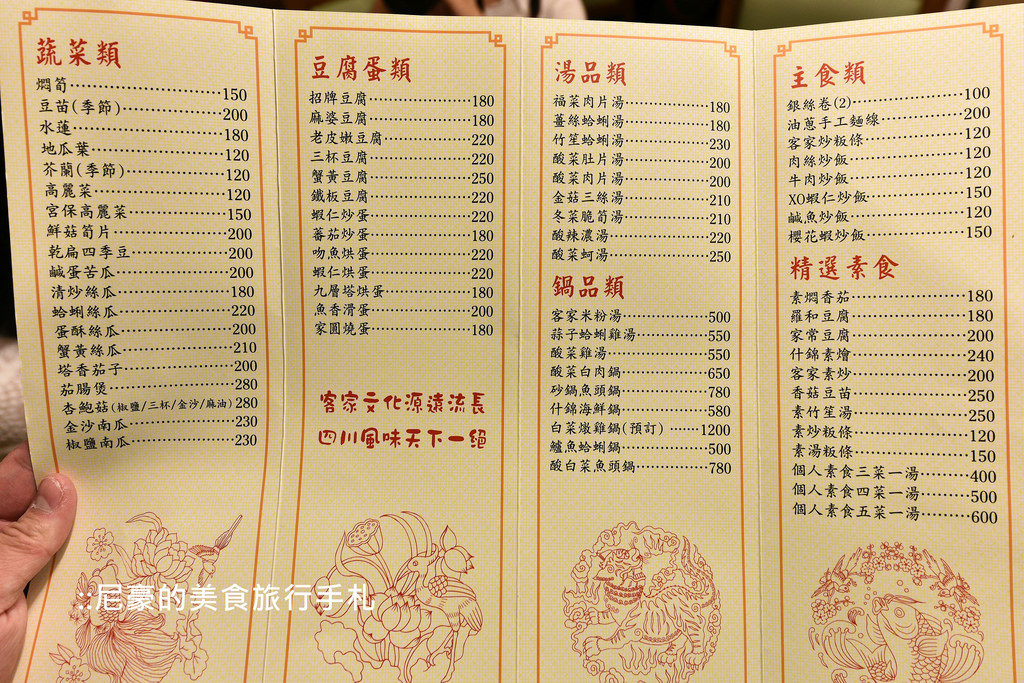 蔬菜類
燜筍……………………150
豆苗(季節)……………200
水蓮……………………180
地瓜葉…………………120
芥蘭(季節)……………120
高麗菜…………………120
宮保高麗菜……………150
鮮菇筍片………………200
乾扁四季豆……………200
鹹蛋苦瓜………………200
清炒絲瓜………………180
蛤蜊絲瓜………………220
蛋酥絲瓜………………200
蟹黃絲瓜………………210
塔香茄子………………200
茄腸煲…………………280
杏鮑菇(椒鹽/三杯/金沙/麻油)280
金沙南瓜………………230
椒鹽南瓜………………230
豆腐蛋類
招牌豆腐………………180
麻婆豆腐………………180
老皮嫩豆腐……………220
三杯豆腐………………220
蟹黃豆腐………………250
鐵板豆腐………………220
蝦仁炒蛋………………220
蕃茄炒蛋………………180
吻魚烘蛋………………220
蝦仁烘蛋………………220
九層塔烘蛋……………180
魚香滑蛋………………200
家圓燒蛋………………180
客家文化源遠流長
四川風味天下一絕
湯品類
福菜肉片湯……………180
薑絲蛤蜊湯……………180
竹笙蛤蜊湯……………230
酸菜肚片湯……………200
酸菜肉片湯……………200
金菇三絲湯……………210
冬菜脆筍湯……………210
酸辣濃湯………………220
酸菜蚵湯………………250
鍋品類
客家米粉湯……………500
蒜子蛤蜊雞湯…………550
酸菜雞湯………………550
酸菜白肉鍋……………650
砂鍋魚頭鍋……………780
什錦海鮮鍋……………580
白菜燉雞鍋(預訂)……1200
鱸魚蛤蜊鍋……………500
酸白菜魚頭鍋…………780
主食類
銀絲卷(2)………………100
油蔥手工麵線…………200
客家炒粄條……………120
肉絲炒飯………………120
牛肉炒飯………………120
XO蝦仁炒飯……………150
鹹魚炒飯………………120
櫻花蝦炒飯……………150
精選素食
素燜香茄………………180
羅和豆腐………………180
家常豆腐………………200
什錦素燴………………240
客家素炒………………200
香菇豆苗………………250
素竹笙湯………………250
素炒粄條………………120
素湯粄條………………150
個人素食三菜一湯……400
個人素食四菜一湯……500
個人素食五菜一湯……600
::尼豪的美食旅行手札